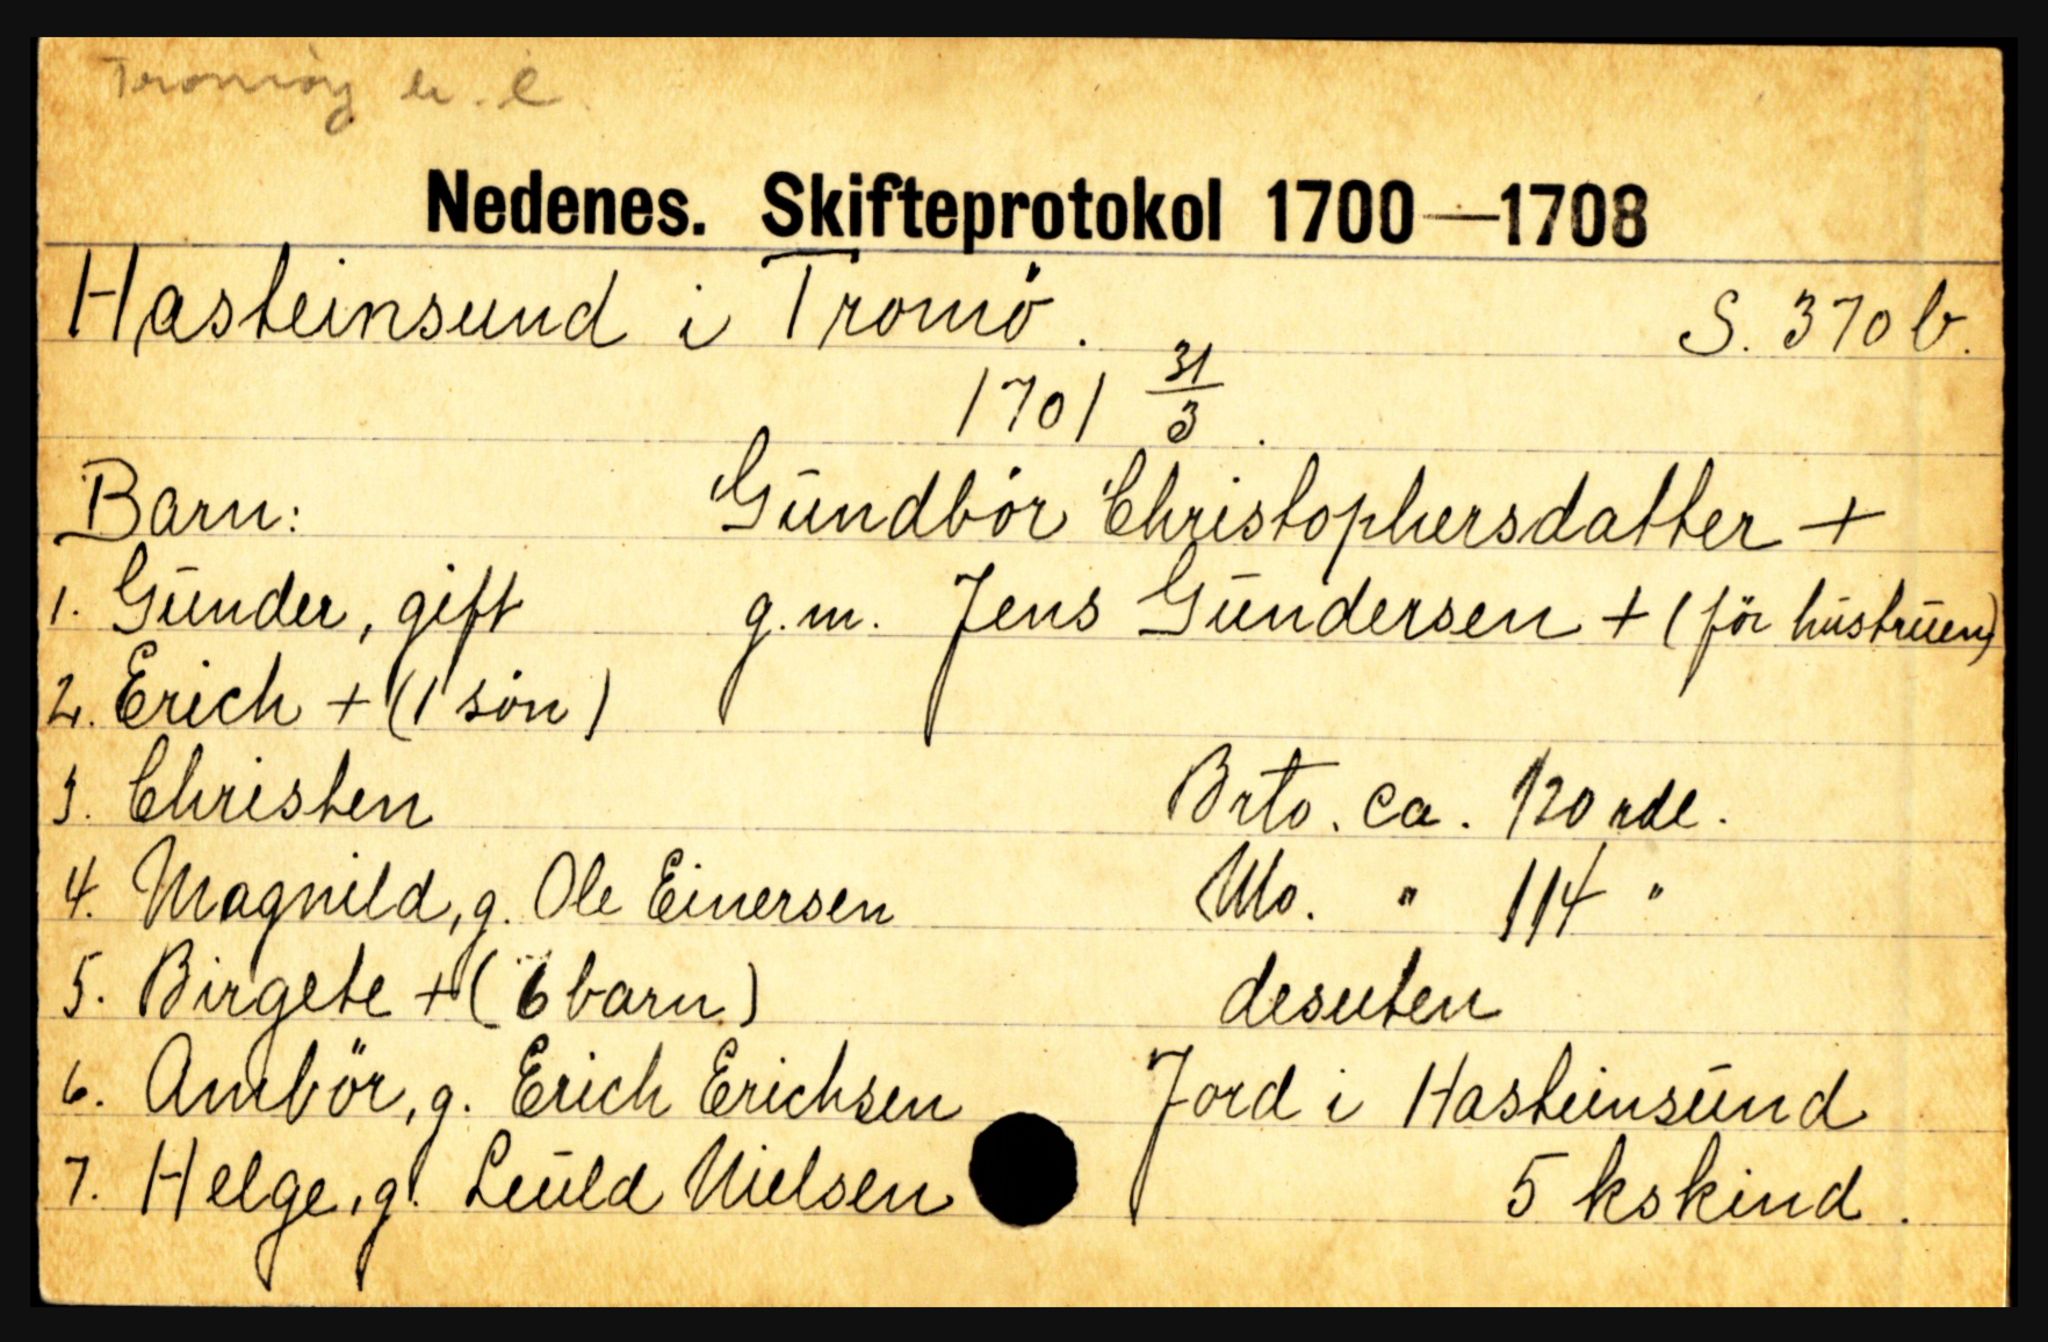 Tromøy
Nedenes. Skifteprotokol 1700—1708
Hasteinsund i Tromö. S. 370 b.
1701 31/3.
Barn: Gŭndbör Christophersdatter +
1. Gŭnder, gift g.m. Jens Gŭndersen + (för hŭstrŭen)
2. Erich + (1 sön)
3. Christen Brto. ca. 120 rdl.
4. Magnild, g. Ole Einersen Nto. " 114 "
5. Birgete + (6 barn) desuten
6. Ambör, g. Erich Erichsen Jord i Hasteinsŭnd
7. Helge, g. Leŭld Nielsen 5 kskind.